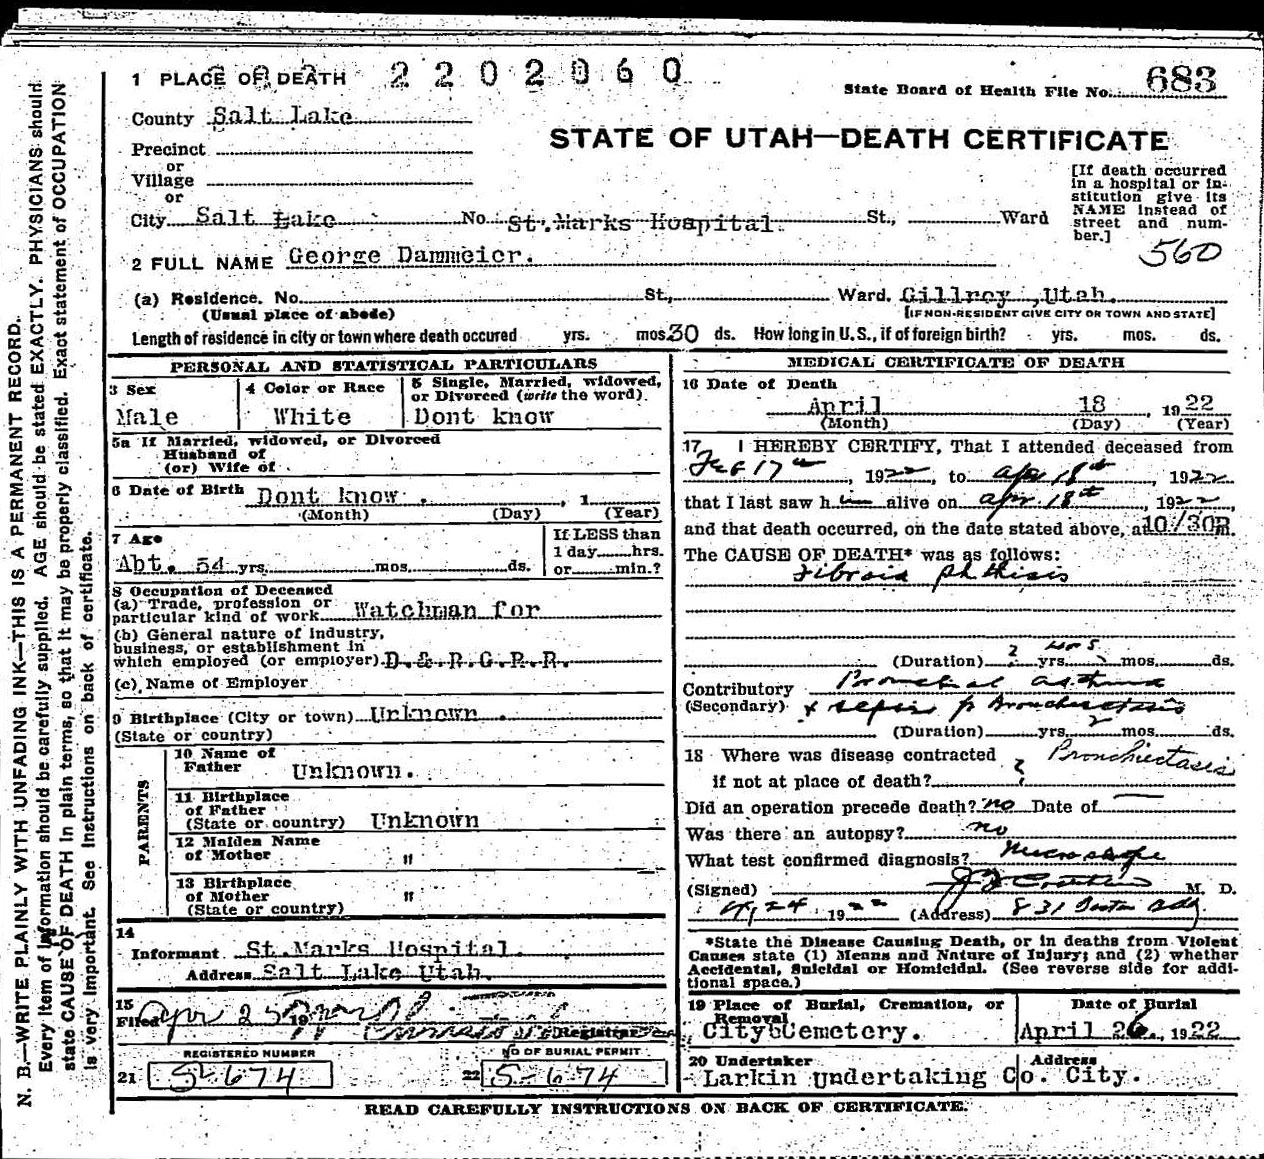 1 PLACE OF DEATH 2202060
State Board of Health File No. 683
County Salt Lake
STATE OF UTAH—DEATH CERTIFICATE
Precinct
or
Village
or
City Salt Lake No. St. Marks Hospital St., Ward
[If death occurred in a hospital or institution give its NAME instead of street and number.]
560
2 FULL NAME George Dammeier.
(a) Residence. No. St., Ward. Gillroy ,Utah.
(Usual place of abode) [IF NON-RESIDENT GIVE CITY OR TOWN AND STATE]
Length of residence in city or town where death occured yrs. mos. 30 ds. How long in U.S., if of foreign birth? yrs. mos. ds.
PERSONAL AND STATISTICAL PARTICULARS
3 Sex
Male
4 Color or Race
White
5 Single, Married, widowed,
or Divorced (write the word).
Dont know
5a If Married, widowed, or Divorced
Husband of
(or) Wife of
6 Date of Birth Dont know . , 1
(Month) (Day) (Year)
7 Age
Abt. 54 yrs. mos. ds.
If LESS than
1 day hrs.
or min.?
8 Occupation of Deceased
(a) Trade, profession or
particular kind of work Watchman for
(b) General nature of industry,
business, or establishment in
which employed (or employer) D.& R.G.R.R.
(c) Name of Employer
9 Birthplace (City or town) Unknown .
(State or country)
PARENTS
10 Name of
Father Unknown.
11 Birthplace
of Father
(State or country) Unknown
12 Maiden Name
of Mother "
13 Birthplace
of Mother "
(State or country)
14
Informant St. Marks Hospital.
Address Salt Lake Utah.
15
Filed Apr 25 19
Registrar
REGISTERED NUMBER
21 5674
NO OF BURIAL PERMIT
22 5674
MEDICAL CERTIFICATE OF DEATH
16 Date of Death
April 18 , 1922
(Month) (Day) (Year)
17 I HEREBY CERTIFY, That I attended deceased from
Feb 17th , 1922, to Apr 18th , 1922
that I last saw h im alive on Apr 18th , 1922,
and that death occurred, on the date stated above, at 10/30P m.
The CAUSE OF DEATH* was as follows:
Fibroid phthisis
(Duration) ? yrs. mos. ds.
Contributory Bronchial asthma
(Secondary) & sepsis fr Bronchiectasis
(Duration) yrs. ? mos. ds.
18 Where was disease contracted
if not at place of death? ? Bronchiectasis
Did an operation precede death? no Date of —
Was there an autopsy? no
What test confirmed diagnosis? Microscope
(Signed) M. D.
4/24 , 1922 (Address) 831 Bdg
*State the Disease Causing Death, or in deaths from Violent
Causes state (1) Menns and Nature of Injury; and (2) whether
Accidental, Suicidal or Homicidal. (See reverse side for addi-
tional space.)
19 Place of Burial, Cremation, or
Removal
City Cemetery.
Date of Burial
April 26. , 1922
20 Undertaker Address
Larkin Undertaking Co. City.
READ CAREFULLY INSTRUCTIONS ON BACK OF CERTIFICATE.
N. B.—WRITE PLAINLY WITH UNFADING INK—THIS IS A PERMANENT RECORD.
Every item of information should be carefully supplied. AGE should be stated EXACTLY. PHYSICIANS should
state CAUSE OF DEATH in plain terms, so that it may be properly classified. Exact statement of OCCUPATION
is very important. See instructions on back of certificate.